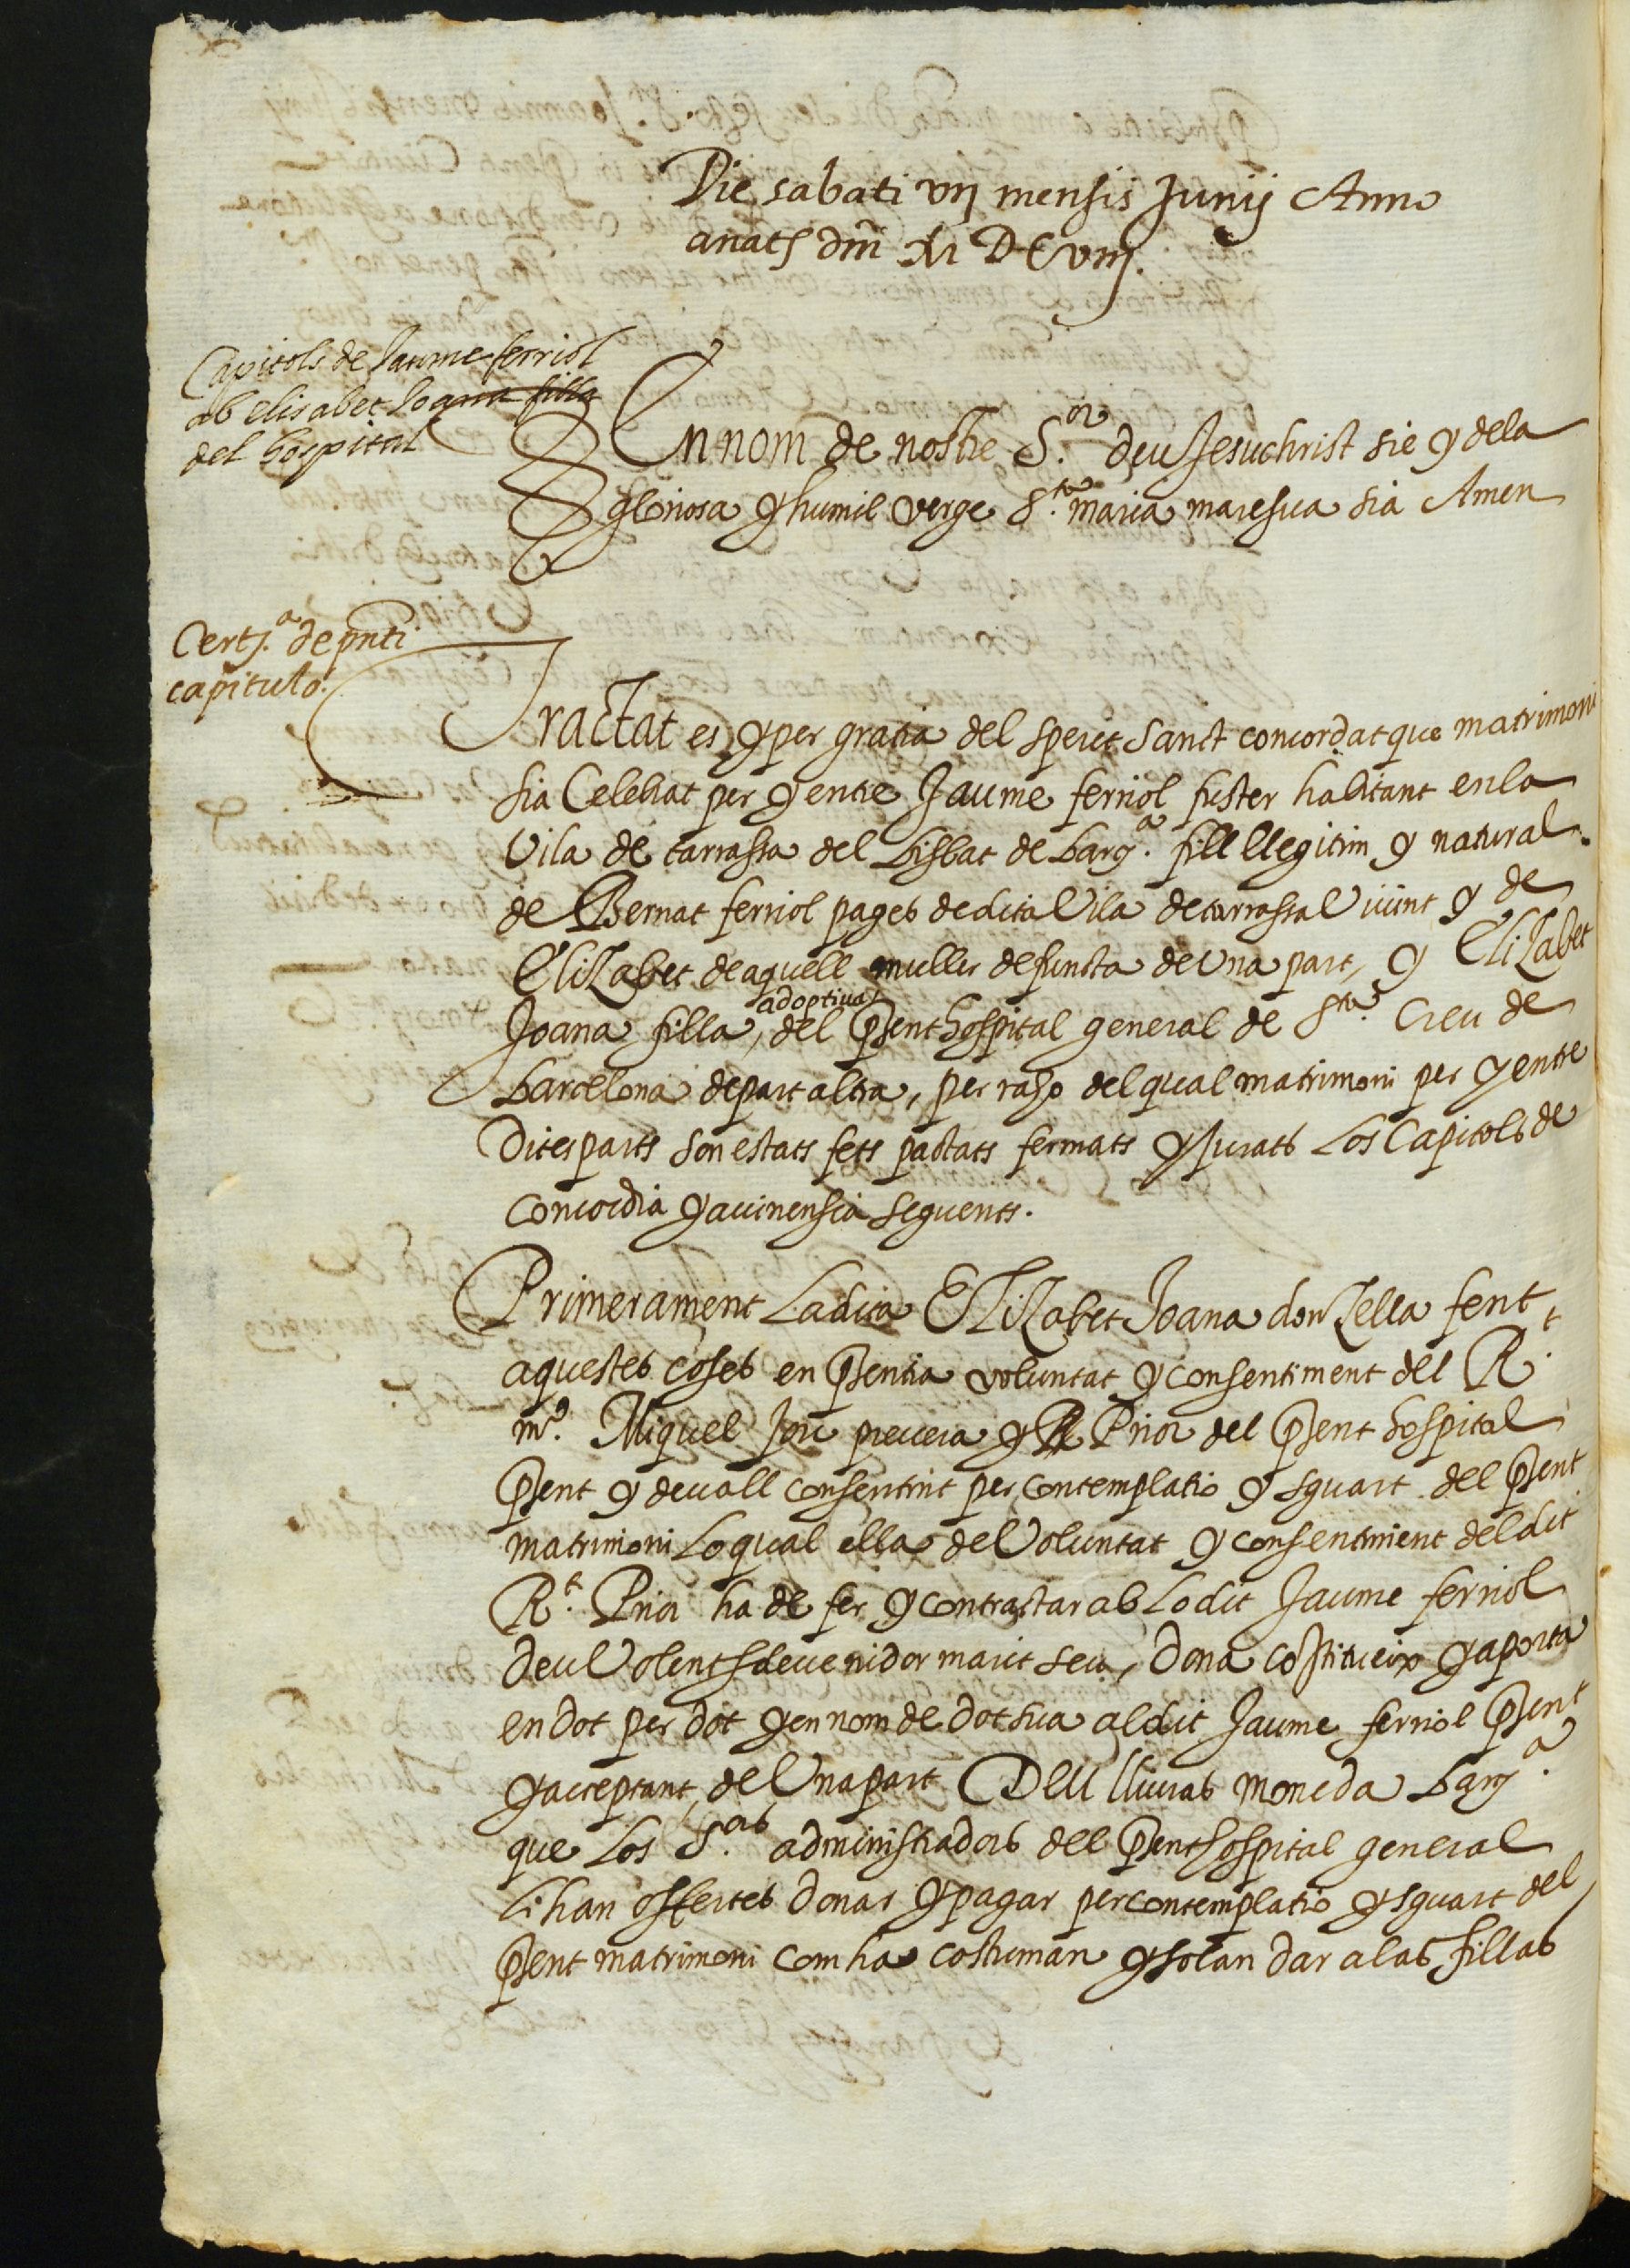 Die sabati vij mensis Junij Anno
a natᵗ dñi M DC viij.
Capitols de Jaume ferriol
ab elisabet Joana filla
del hospital
En nom de nostre S.ᵒʳ deu Jesuchrist sie y dela
gloriosa y humil verge S.ᵗᵃ maria mare sua sia Amen
Certj.ᵃ de pnti
capitulo.
Tractat es y per gratia del sperit sanct concordat que matrimoni
sia Celebrat per y entre Jaume ferriol fuster habitant en la
Vila de tarrassa del bisbat de barᵃ. fill llegitim y natural
de Bernat ferriol pages de dita Vila de tarrassa Vivint y de
Elizabet de aquell muller defuncta de Una part, y Elizabet
adoptiva
Joana filla, del pñt hospital general de S.ᵗᵃ Creu de
barcelona de part altra, per raho del qual matrimoni per y entre
Dites parts son estats fets pactats fermats y jurats Los Capitols de
concordia y avinensia seguents.
Primerament La dita Elizabet Joana donzella fent
aquestes coses en psentia voluntat y consentiment del R.ᵗ
mº. Miquel Jou prevera y Prior del psent hospital
psent y devall consentint per contemplatio y sguart del psent
matrimoni Lo qual ella de Voluntat y consentiment del dit
R.ᵗ Prior ha de fer y contractar ab Lo dit Jaume ferriol
deu Volent sdevenidor marit seu, Dona costitueix y aporta
en dot per dot y en nom de dot sua al dit Jaume ferriol psent
y acceptant, de Una part Deu lliuras moneda barᵃ.
que Los S.ᵒʳˢ administradors del psent hospital general
li han offertes donar y pagar per contemplatio y sguart del
psent matrimoni com ha costuman y solan dar a las fillas